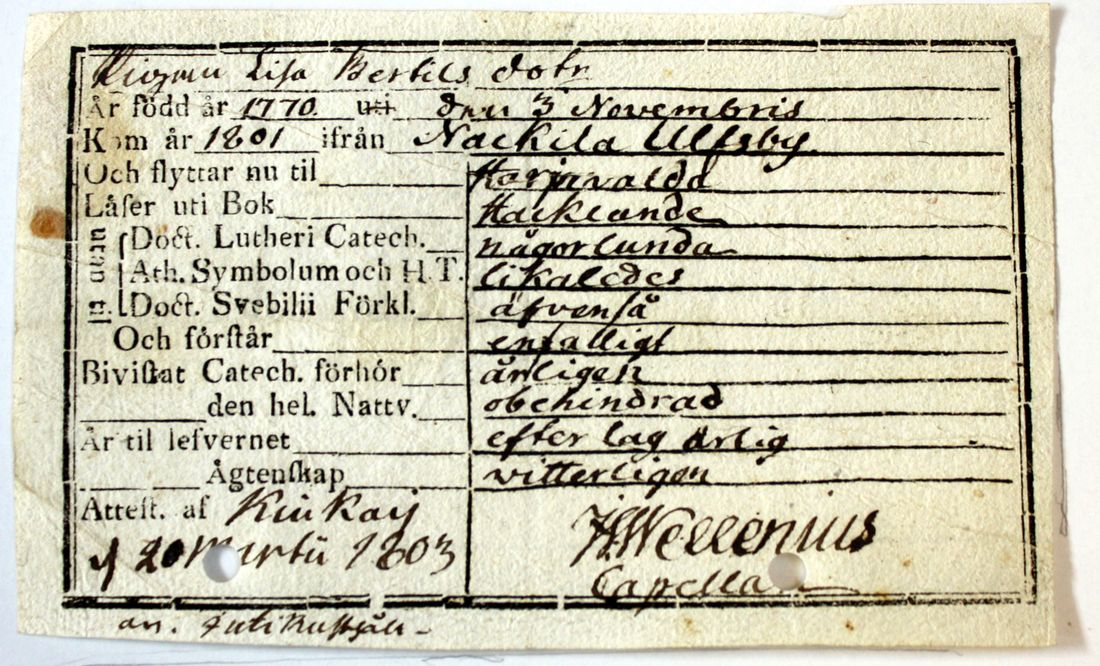 Pigan Lisa Bertils dotr
År född år 1770. uti den 3 Novembris
Kom år 1801 ifrån Nackila Ulfsby.
Och flyttar nu til Harjavalda
Låser uti Bok Hacklande
Doct. Lutheri Catech. någorlunda
Ath. Symbolum och H. T. likaledes
Doct. Svebilii Förkl. äfvenså
Och förstår enfalligt
Bivistat Catech. förhör årligen
den hel. Nattv. obehindrad
År til lefvernet efter lag ärlig
Ägtenskap vitterligen
Attest. af Kiukaij
d 20 Martii 1803
Wellenius
Capellan